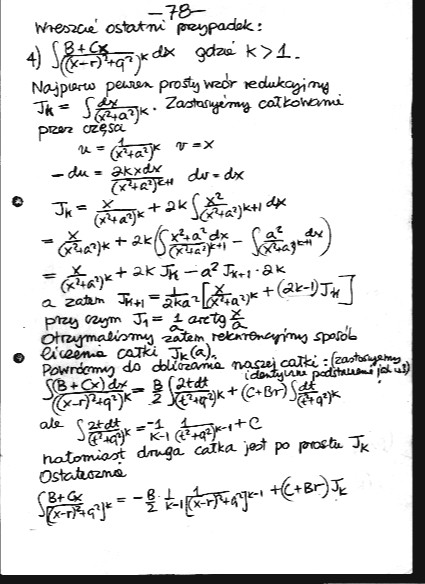 -78-
Wreszcie ostatni przypadek:
4) ∫ (B+Cx)/((x-r)²+q²)^k dx gdzie k>1.
Najpierw pewien prosty wzór redukcyjny
J_k = ∫ dx/(x²+a²)^k. Zastosujemy całkowanie
przez części
u = 1/(x²+a²)^k v=x
-du = 2kxdx/(x²+a²)^(k+1) dv=dx
J_k = x/(x²+a²)^k + 2k ∫ x²/(x²+a²)^(k+1) dx
= x/(x²+a²)^k + 2k(∫ (x²+a²)dx/(x²+a²)^(k+1) - ∫ a²/(x²+a²)^(k+1) dx)
= x/(x²+a²)^k + 2k J_k - a² J_(k+1) · 2k
a zatem J_(k+1) = 1/(2ka²) [x/(x²+a²)^k + (2k-1)J_k]
przy czym J_1 = 1/a arctg x/a
Otrzymaliśmy zatem rekurencyjny sposób
liczenia całki J_k(a).
Powróćmy do obliczania naszej całki: (zastosujemy
identyczne podstawienie jak w 3)
∫ (B+Cx)dx/((x-r)²+q²)^k = B/2 ∫ 2tdt/(t²+q²)^k + (C+Br) ∫ dt/(t²+q²)^k
ale ∫ 2tdt/(t²+q²)^k = -1/(k-1) 1/(t²+q²)^(k-1) + C
natomiast druga całka jest po prostu J_k
Ostatecznie
∫ (B+Cx)/[(x-r)²+q²]^k = -B/2 · 1/(k-1) 1/[(x-r)²+q²]^(k-1) + (C+Br) J_k